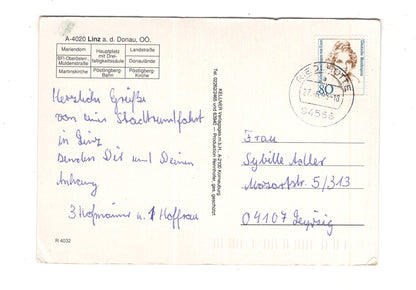 A-4020 Linz a. d. Donau, OÖ.
Mariendom
Hauptplatz mit Drei- faltigkeitssäule
Landstraße
BFI-Oberöster., Muldenstraße
Donaulände
Martinskirche
Pöstlingberg- Bahn
Pöstlgberg- Kirche
Herzliche Grüße
von einer Stadtrundfahrt
in Linz
senden Dir und Deinen
Anhang
3 Hofmänner u. 1 Hoffrau
R 4032
KELLNER Verlagsges.m.b.H., A-2100 Korneuburg
Tel. 02262/2465 und 63940 - Production Reinthofer, ges. geschützt
80
94566
Frau
Sybille Adler
Mozartstr. 5/313
04107 Leipzig